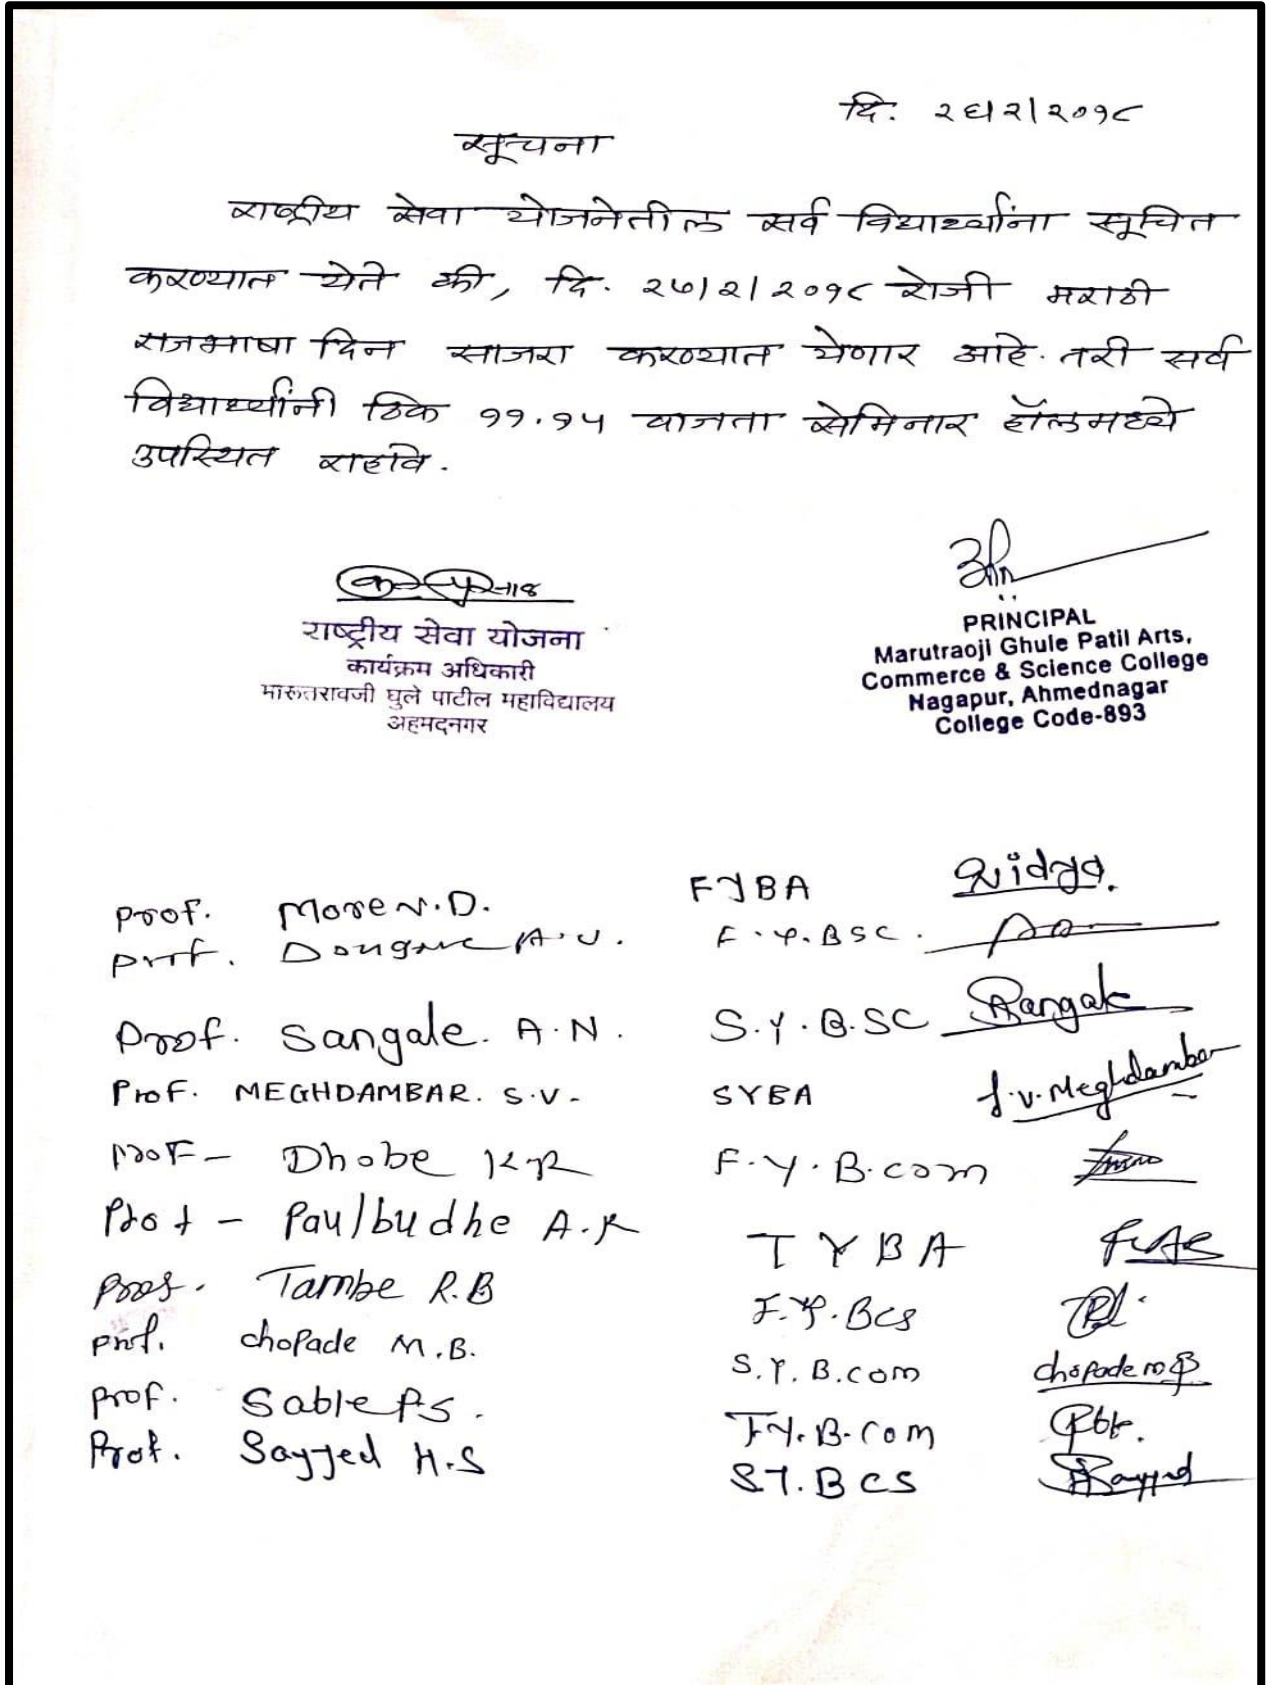 दि. २६/२/२०१८
सूचना
राष्ट्रीय सेवा योजनेतील सर्व विद्यार्थ्यांना सूचित
करण्यात येते की, दि. २७/२/२०१८ रोजी मराठी
राजभाषा दिन साजरा करण्यात येणार आहे. तरी सर्व
विद्यार्थ्यांनी ठिक ११.१५ वाजता सेमिनार हॉलमध्ये
उपस्थित राहवे.
राष्ट्रीय सेवा योजना
कार्यक्रम अधिकारी
मारुतरावजी घुले पाटील महाविद्यालय
अहमदनगर
PRINCIPAL
Marutraoji Ghule Patil Arts,
Commerce & Science College
Nagapur, Ahmednagar
College Code-893
Prof. More N.D. FYBA Vidya.
Prof. Dongare A.U. F.Y.BSC.
Prof. Sangale. A.N. S.Y.B.SC Sangale
Prof. MEGHDAMBAR. S.V. SYBA S.V. Meghdambar
Prof - Dhobe K.R F.Y.B.com
Prof - Paulbudhe A.R TYBA
Prof. Tambe R.B F.Y.BCS
Prof. Chopade M.B. S.Y.B.com Chopade MB
Prof. Sable P.S. T.Y.B.Com
Prof. Sayyed H.S S.Y.BCS Sayyed